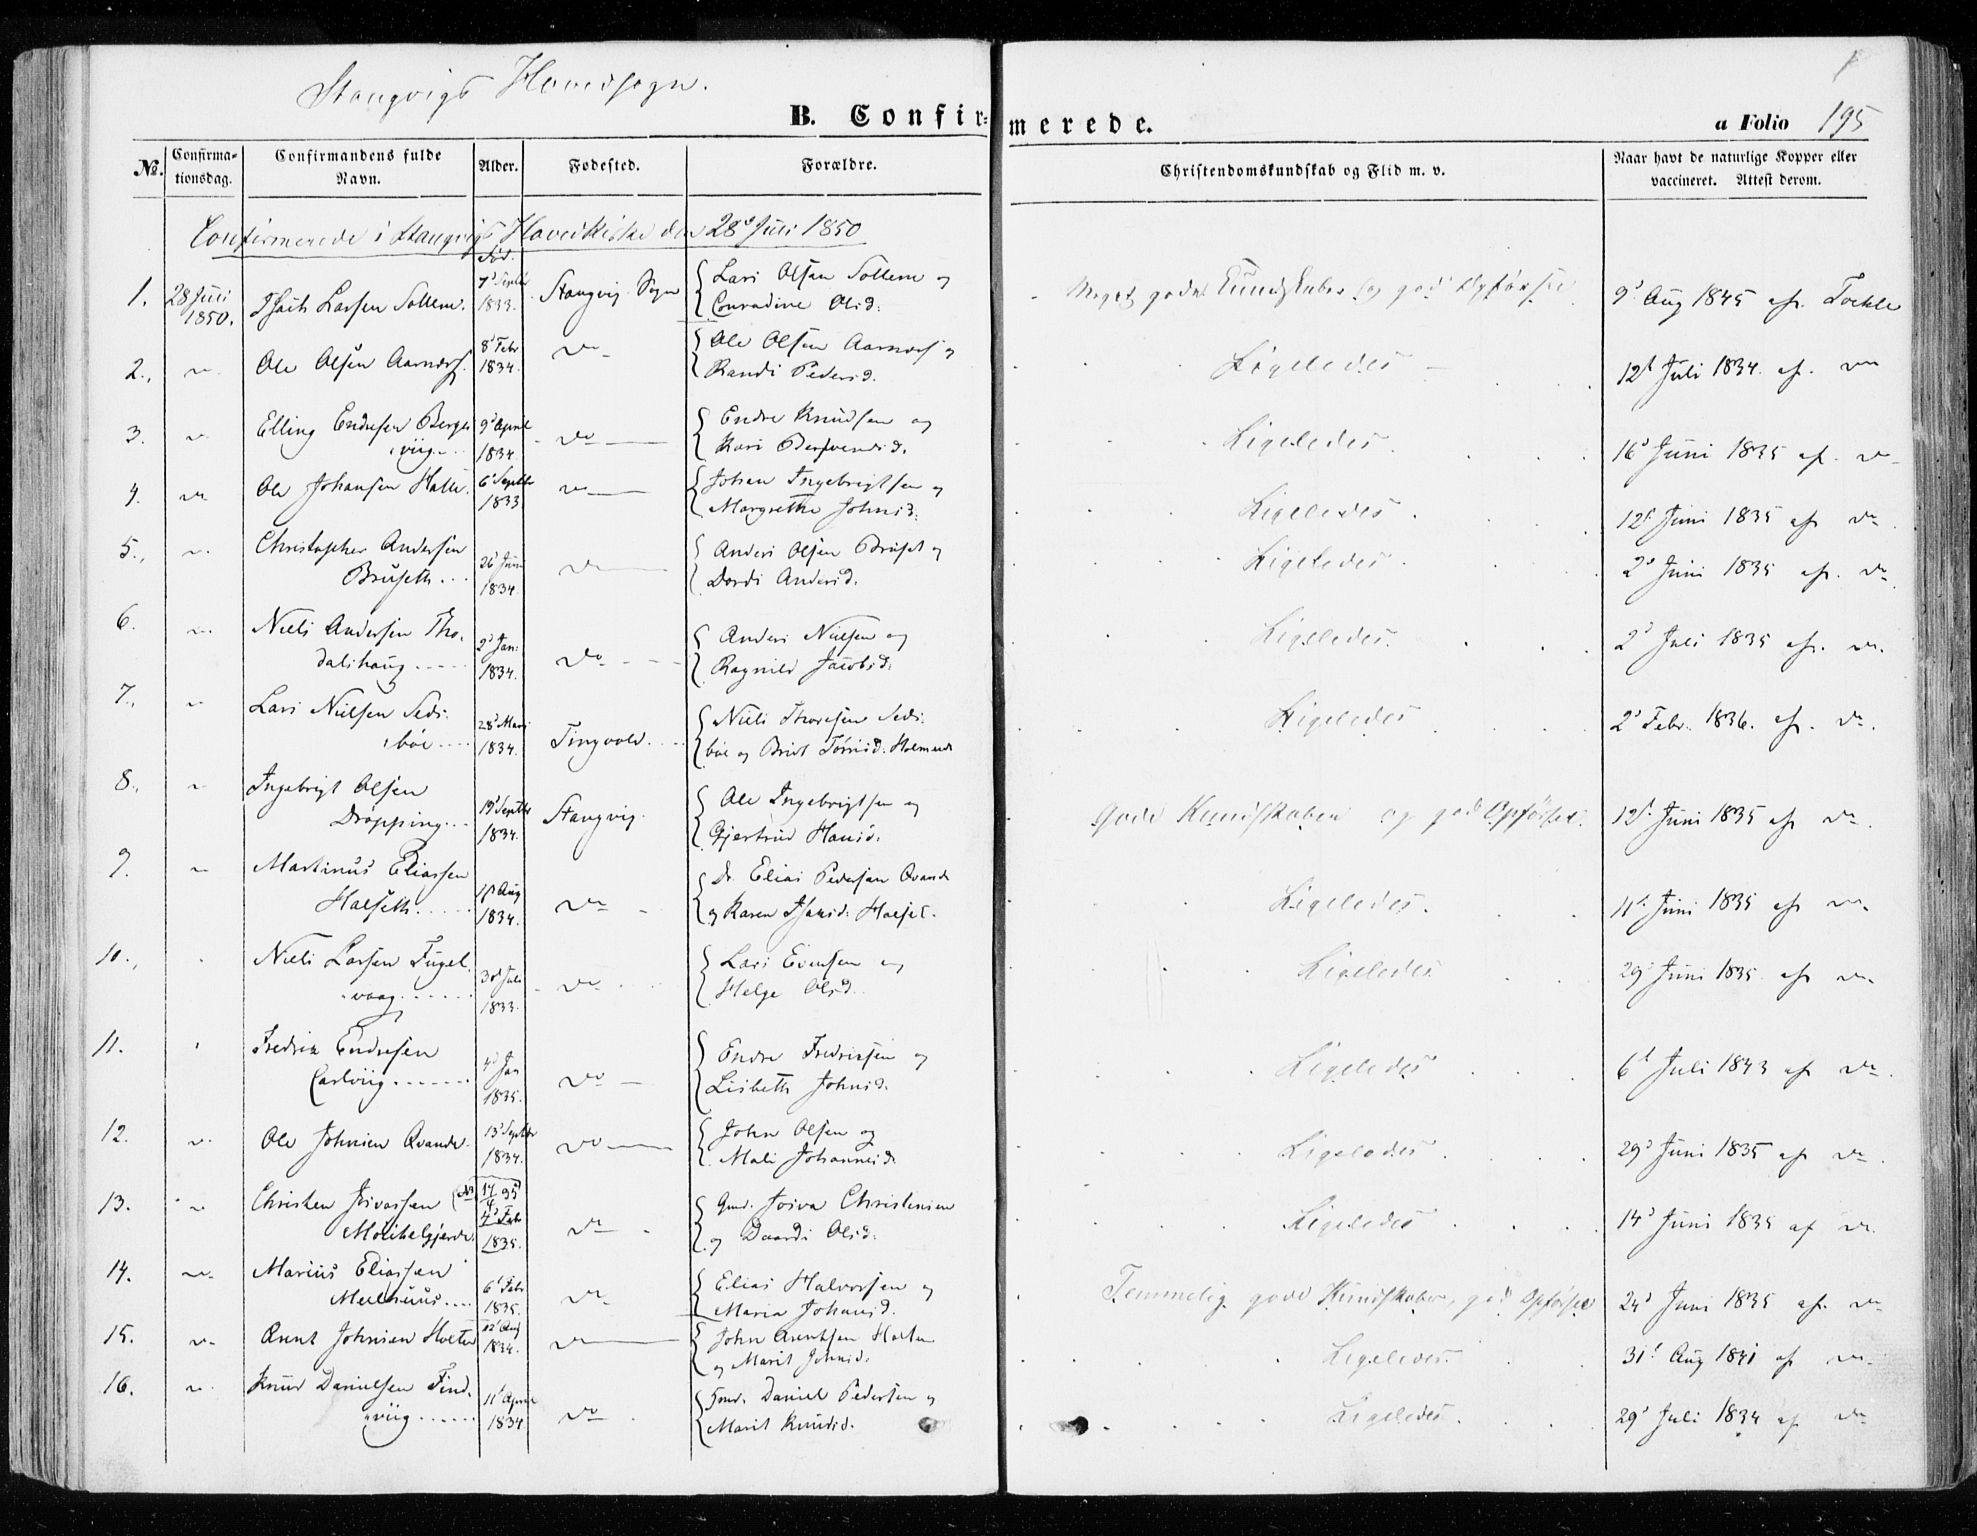 Stangvigs Hovedsogn.
B. Confirmerede.
a Folio 195
No. Confirmationsdag. Confirmandens fulde Navn. Alder. Fødested. Forældre. Christendomskundskab og Flid m. v. Naar havt de naturlige Kopper eller vaccineret. Attest derom.
Confirmerede i Stangvigs Hovedkirke den 28de Juli 1850
1. 28 Juli 1850. Larsen Sollem. Fød. 7d Septbr 1833. Stangvig Sogn Lars Olsen Sollem og Conradine Olsd: Meget gode Kundskaber og god Opførsel 9d Aug 1845 af
2. Ole Olsen Aarnæs 8d Febr 1834. do Ole Olsen Aarnæs og Randi Pedersd. Ligeledes 12t Juli 1834. af. do
3. Elling Endresen Bergsviig 9d April 1834. do Endre Knudsen og Kari Ligeledes. 16d Juni 1835 af. do
4. do Ole Johansen Halle. 6d Septbr 1833 do Johan Ingebrigtsen og Margrethe Johnsd. Ligeledes 12t Juni 1835 af do
5. Christopher Andersen Bruseth 26d 1834. do Anders Olsen Bruset og Dordi Andersd. Ligeledes 2d Juni 1835 af. do
6. Niels Andersen Thodalshaug 2d Jan: 1834. do Anders Nielsen og Ragnild Jacobsd: Ligeledes. 2d Juli 1835 af. do
7. Lars Nielsen Sedsbøe 28d Mars 1834. Tingvold. Niels Thoresen Sedsbøe og Brit Ligeledes 2d Febr. 1836. af. do
8. Ingebrigt Olsen Drøpping 19d Septbr 1834. Stangvig. Ole Ingebrigtsen og Gjertrud Hansd. Gode Kundskaber og god Opførsel. 12t Juni 1835 af do
9. Martinus Eliassen Halseth Aug 1834. do Elias Pedersen Qvande og Karen Halset. Ligeledes. 11t Juni 1835 af do
10. Niels Larsen Fuglvaag Juli 1833. do Lars Evensen og Helge Olsd. Ligeledes 29d Juni 1835 af do
11. Fredrik Endresen Carlviig 4d Jan 1835. do Endre Fredriksen og Lisbeth Johnsd. Ligeledes 6t Juli 1843 af do
12. Ole Johnsen Qvande. 13d Septbr 1834. do John Olsen og Mali Johannesd. Ligeledes 29d Juni 1835 af do
13. Christen Josvassen 4d Feb 1835. do Gmd. Josva Christensen og Daardi Olsd. Ligeledes 14d Juni 1835 af do
14. Marius Eliassen Meelhuus 6t Feb 1835. do Elias Halvorsen og Maria Johansd. Temmelig gode Kundskaber, god Opførsel 24d Juni 1835 af. do
15. Arnt Johnsen Holten 12t Aug 1834. do John Arentsen Holten og Marit Johnsd. Ligeledes. 31t Aug 1841 af do
16. Knud Danielsen Findviig 11t April 1834 do Daniel Pedersen og Marit Knudsd. Ligeledes. 29d Juli 1834 af do